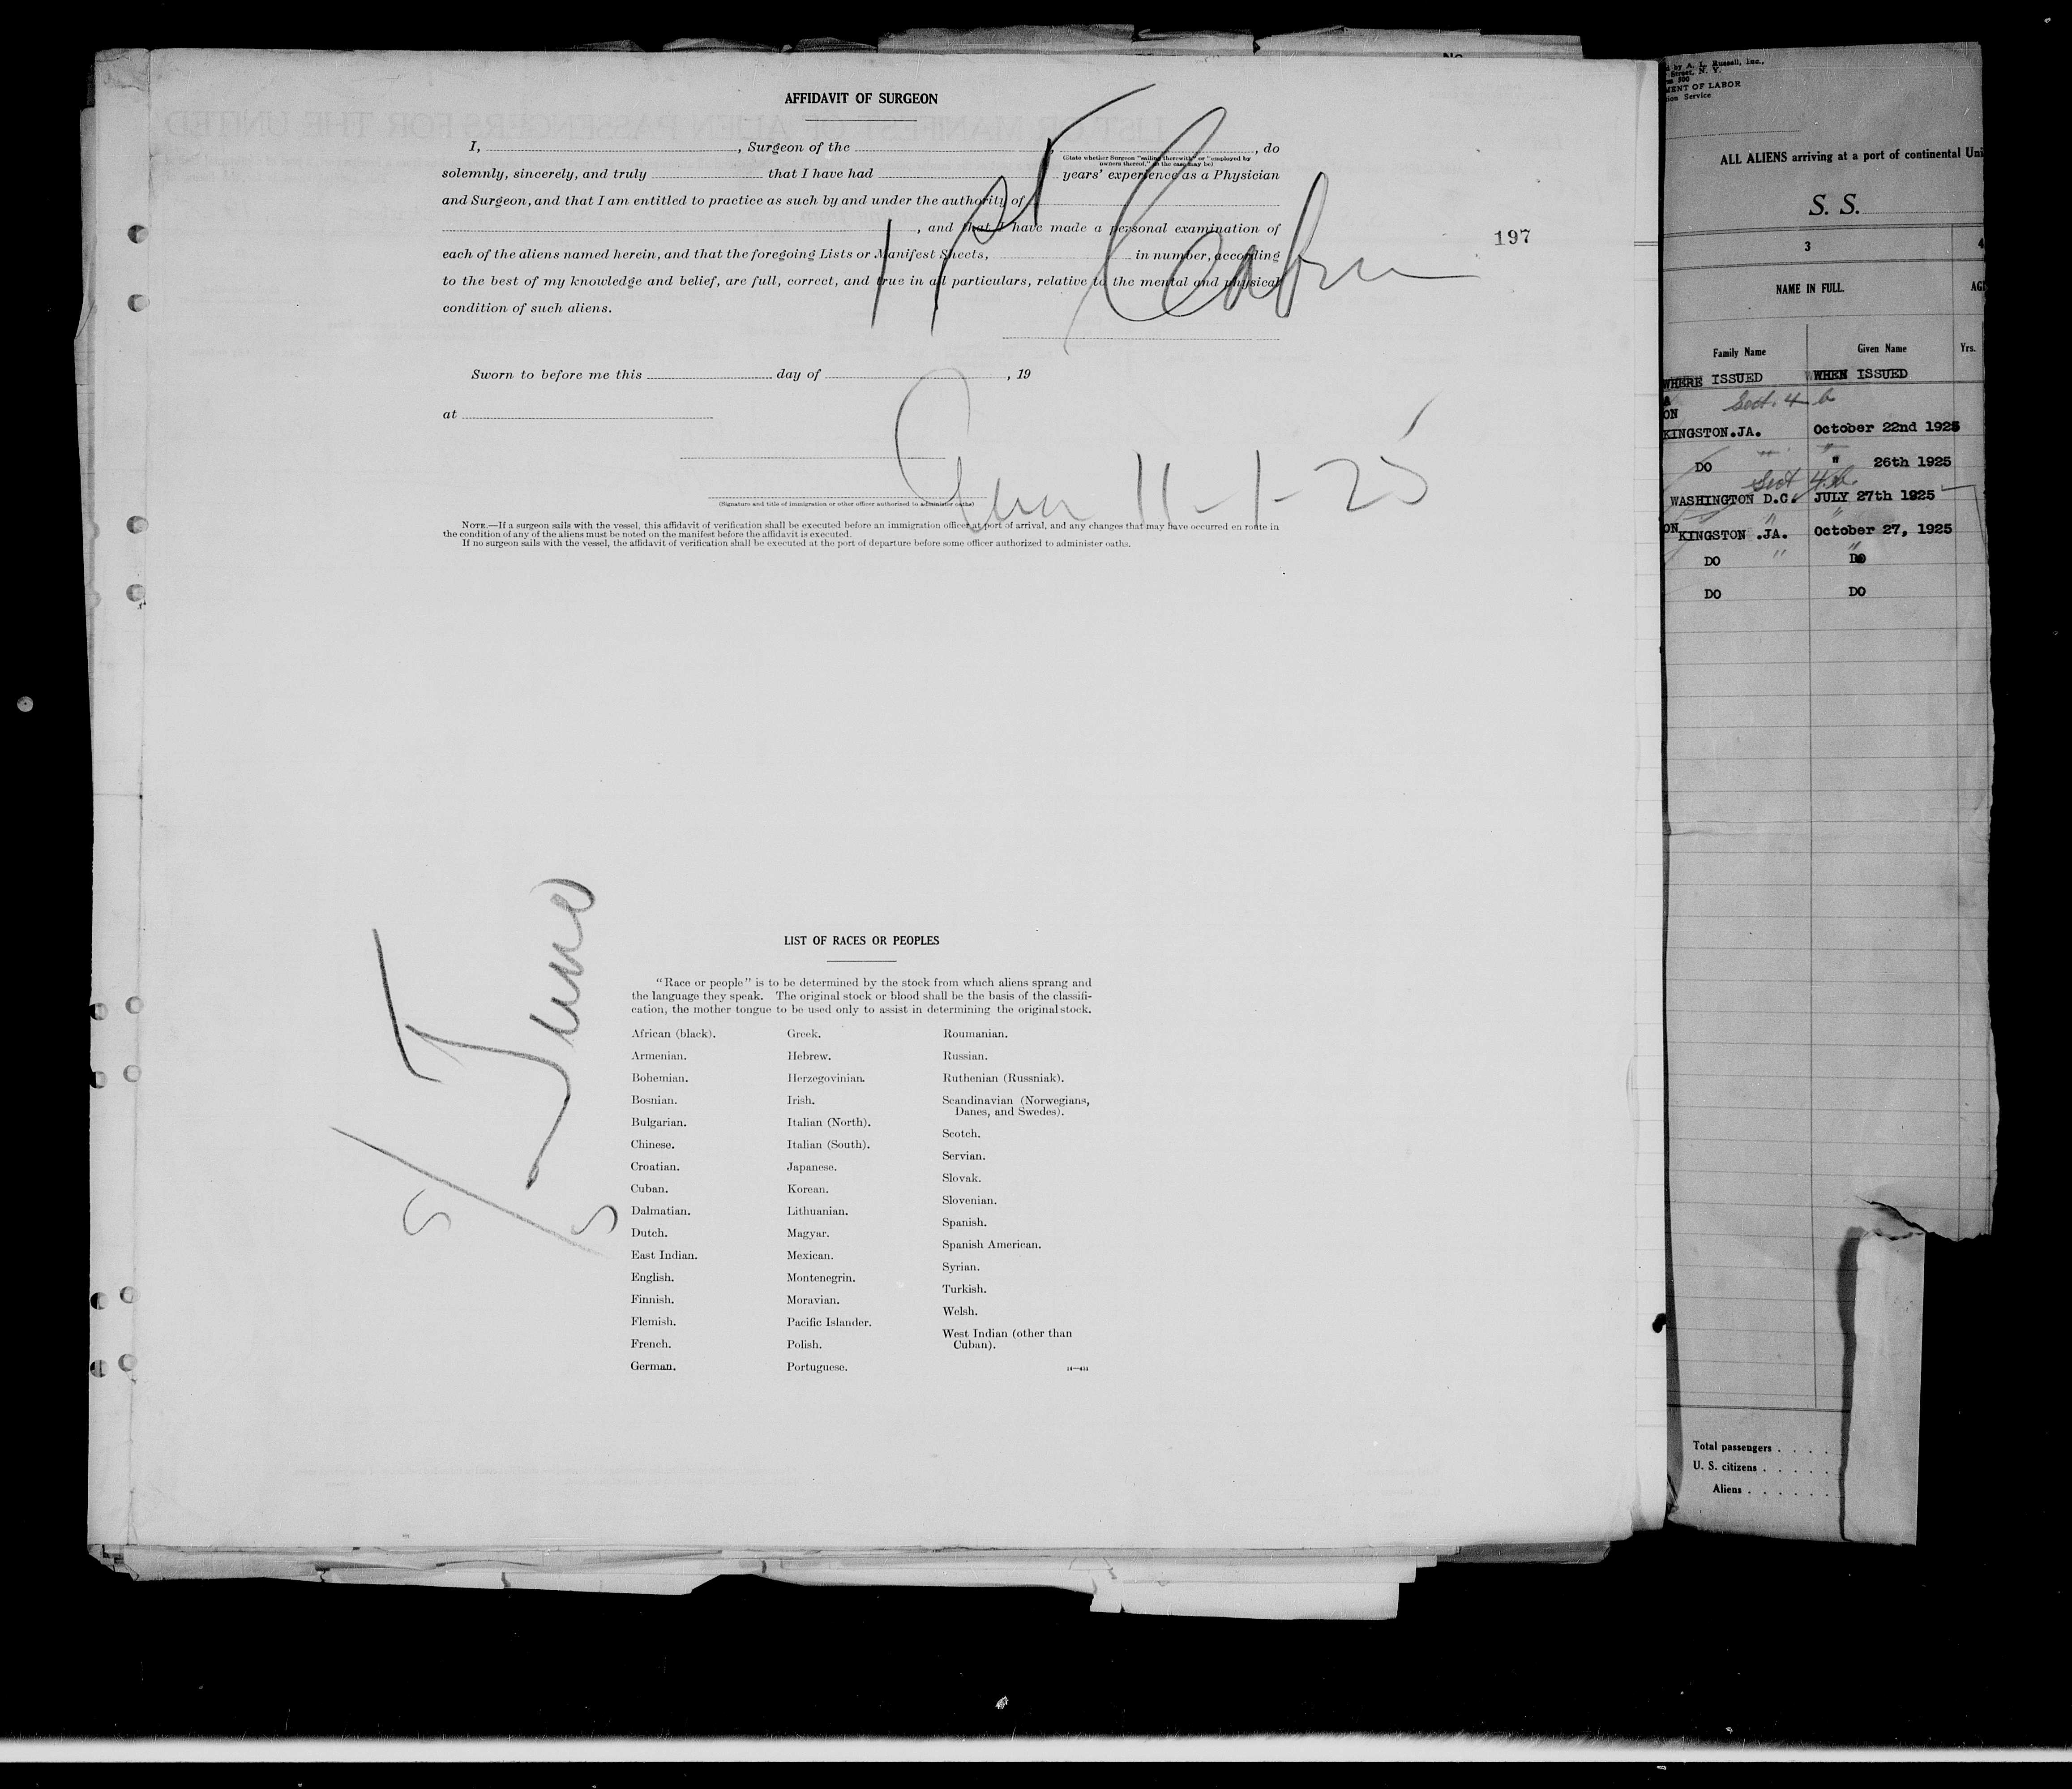 AFFIDAVIT OF SURGEON
I, , Surgeon of the , , do
(State whether Surgeon "sailing therewith" or "employed by
owners thereof," as the case may be)
solemnly, sincerely, and truly that I have had years' experience as a Physician
and Surgeon, and that I am entitled to practice as such by and under the authority of
, and that I have made a personal examination of
each of the aliens named herein, and that the foregoing Lists or Manifest Sheets, in number, according
to the best of my knowledge and belief, are full, correct, and true in all particulars, relative to the mental and physical
condition of such aliens.
1st Cabin
197
Sworn to before me this day of , 19
at
11-1-25
(Signature and title of immigration or other officer authorized to administer oaths)
NOTE.—If a surgeon sails with the vessel, this affidavit of verification shall be executed before an immigration officer at port of arrival, and any changes that may have occurred en route in
the condition of any of the aliens must be noted on the manifest before the affidavit is executed.
If no surgeon sails with the vessel, the affidavit of verification shall be executed at the port of departure before some officer authorized to administer oaths.
S/S
LIST OF RACES OR PEOPLES
"Race or people" is to be determined by the stock from which aliens sprang and
the language they speak. The original stock or blood shall be the basis of the classifi-
cation, the mother tongue to be used only to assist in determining the original stock.
African (black).
Armenian.
Bohemian.
Bosnian.
Bulgarian.
Chinese.
Croatian.
Cuban.
Dalmatian.
Dutch.
East Indian.
English.
Finnish.
Flemish.
French.
German.
Greek.
Hebrew.
Herzegovinian.
Irish.
Italian (North).
Italian (South).
Japanese.
Korean.
Lithuanian.
Magyar.
Mexican.
Montenegrin.
Moravian.
Pacific Islander.
Polish.
Portuguese.
Roumanian.
Russian.
Ruthenian (Russniak).
Scandinavian (Norwegians,
Danes, and Swedes).
Scotch.
Servian.
Slovak.
Slovenian.
Spanish.
Spanish American.
Syrian.
Turkish.
Welsh.
West Indian (other than
Cuban).
by A. L. Russell, Inc.,
Street, N. Y.
500
MENT OF LABOR
tion Service
ALL ALIENS arriving at a port of continental Uni
S. S.
3 4
NAME IN FULL. AG
Family Name Given Name Yrs.
WHERE ISSUED WHEN ISSUED
Sect. 4 b
ON
KINGSTON.JA. October 22nd 1925
DO " 26th 1925
Sect 4 b
WASHINGTON D.C. JULY 27th 1925
ON KINGSTON .JA. October 27, 1925
DO " DO
DO DO
Total passengers . . . .
U. S. citizens . . . . .
Aliens . . . . . .